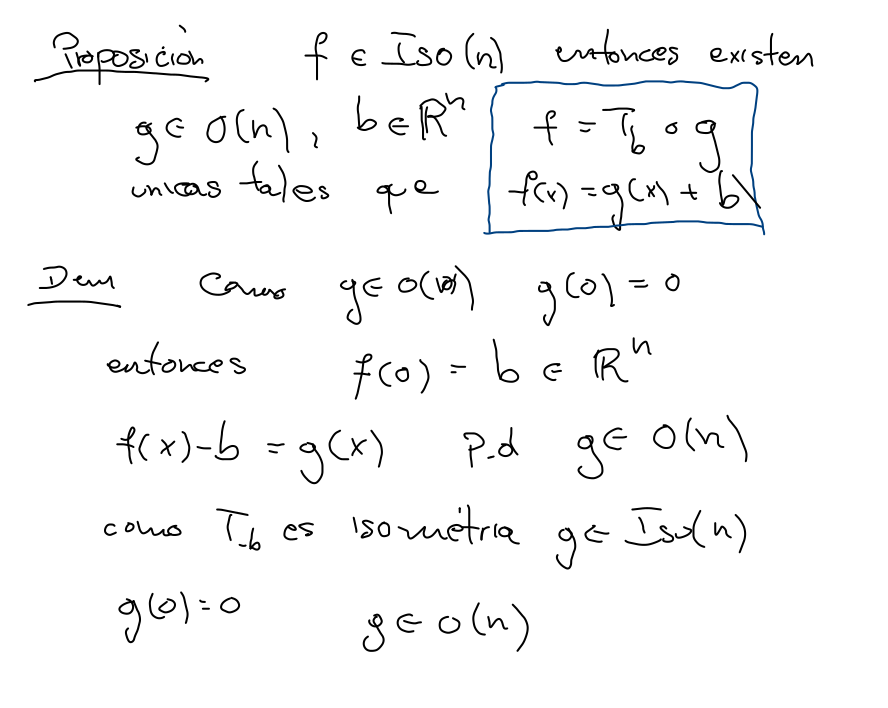 Proposición f ∈ Iso(n) entonces existen
g ∈ O(n), b ∈ ℝⁿ f = T_b ∘ g
unicas tales que f(x) = g(x) + b
Dem Como g ∈ O(n) g(0) = 0
entonces f(0) = b ∈ ℝⁿ
f(x)-b = g(x) P.d g ∈ O(n)
como T_-b es isométria g ∈ Iso(n)
g(0) = 0 g ∈ O(n)